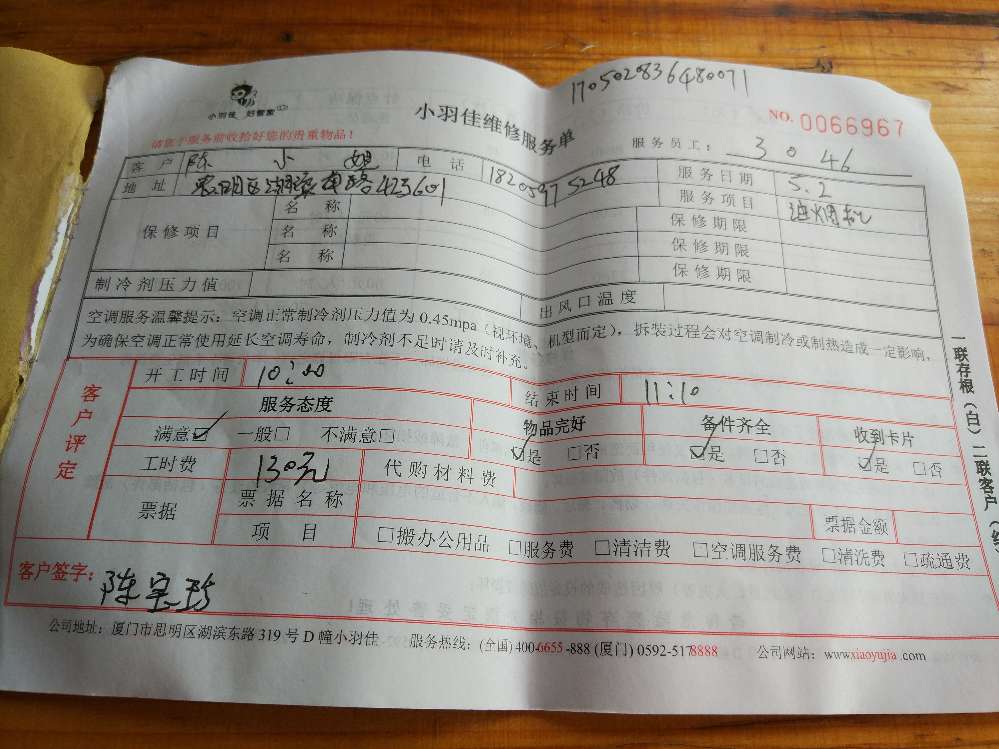 170502836480071
小羽佳 好管家
小羽佳维修服务单
NO. 0066967
请您于服务前收拾好您的贵重物品！
服务员工： 3046
客户 陈小姐 电话 18205975248 服务日期 5.2
地址 思明区湖滨南路 服务项目 油烟机
保修项目 名称 保修期限
名称 保修期限
名称 保修期限
制冷剂压力值 出风口温度
空调服务温馨提示：空调正常制冷剂压力值为 0.45mpa（视环境、机型而定），拆装过程会对空调制冷或制热造成一定影响，
为确保空调正常使用延长空调寿命，制冷剂不足时请及时补充。
客户评定
开工时间 10:00 结束时间 11:10
服务态度 物品完好 备件齐全 收到卡片
满意☑ 一般□ 不满意□ ☑是 □否 ☑是 □否 ☑是 □否
工时费 130元 代购材料费
票据 票据名称 票据金额
项目 □搬办公用品 □服务费 □清洁费 □空调服务费 □清洗费 □疏通费
客户签字：陈宝珍
公司地址：厦门市思明区湖滨东路 319 号 D 幢小羽佳 服务热线：(全国) 400-6655-888 (厦门) 0592-5178888 公司网站：www.xiaoyujia.com
一联存根（白）二联客户（红